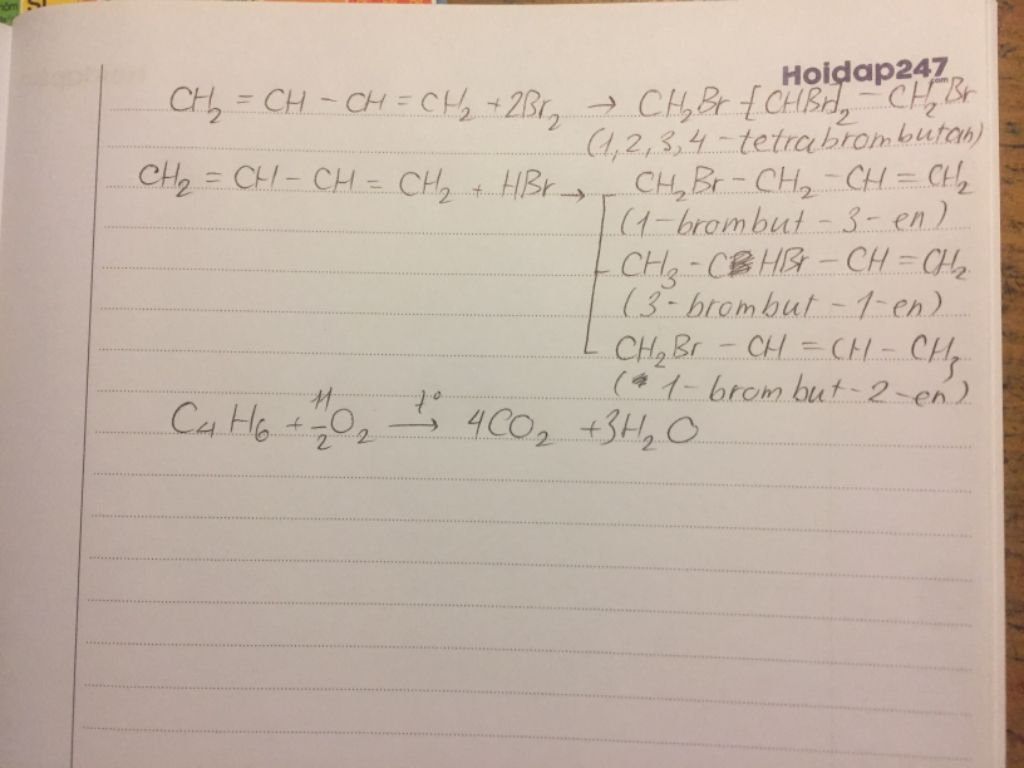 SI
Hoidap247
.com
CH₂ = CH - CH = CH₂ + 2Br₂ → CH₂Br -[CHBr]₂ - CH₂Br
(1,2,3,4 - tetrabrombutan)
CH₂ = CH - CH = CH₂ + HBr → CH₂Br - CH₂ - CH = CH₂
(1-brombut - 3 - en)
CH₃ - CHBr - CH = CH₂
(3-brombut - 1 - en)
CH₂Br - CH = CH - CH₃
(1-brombut - 2 - en)
C₄H₆ + 11/2 O₂ —t°→ 4CO₂ + 3H₂O